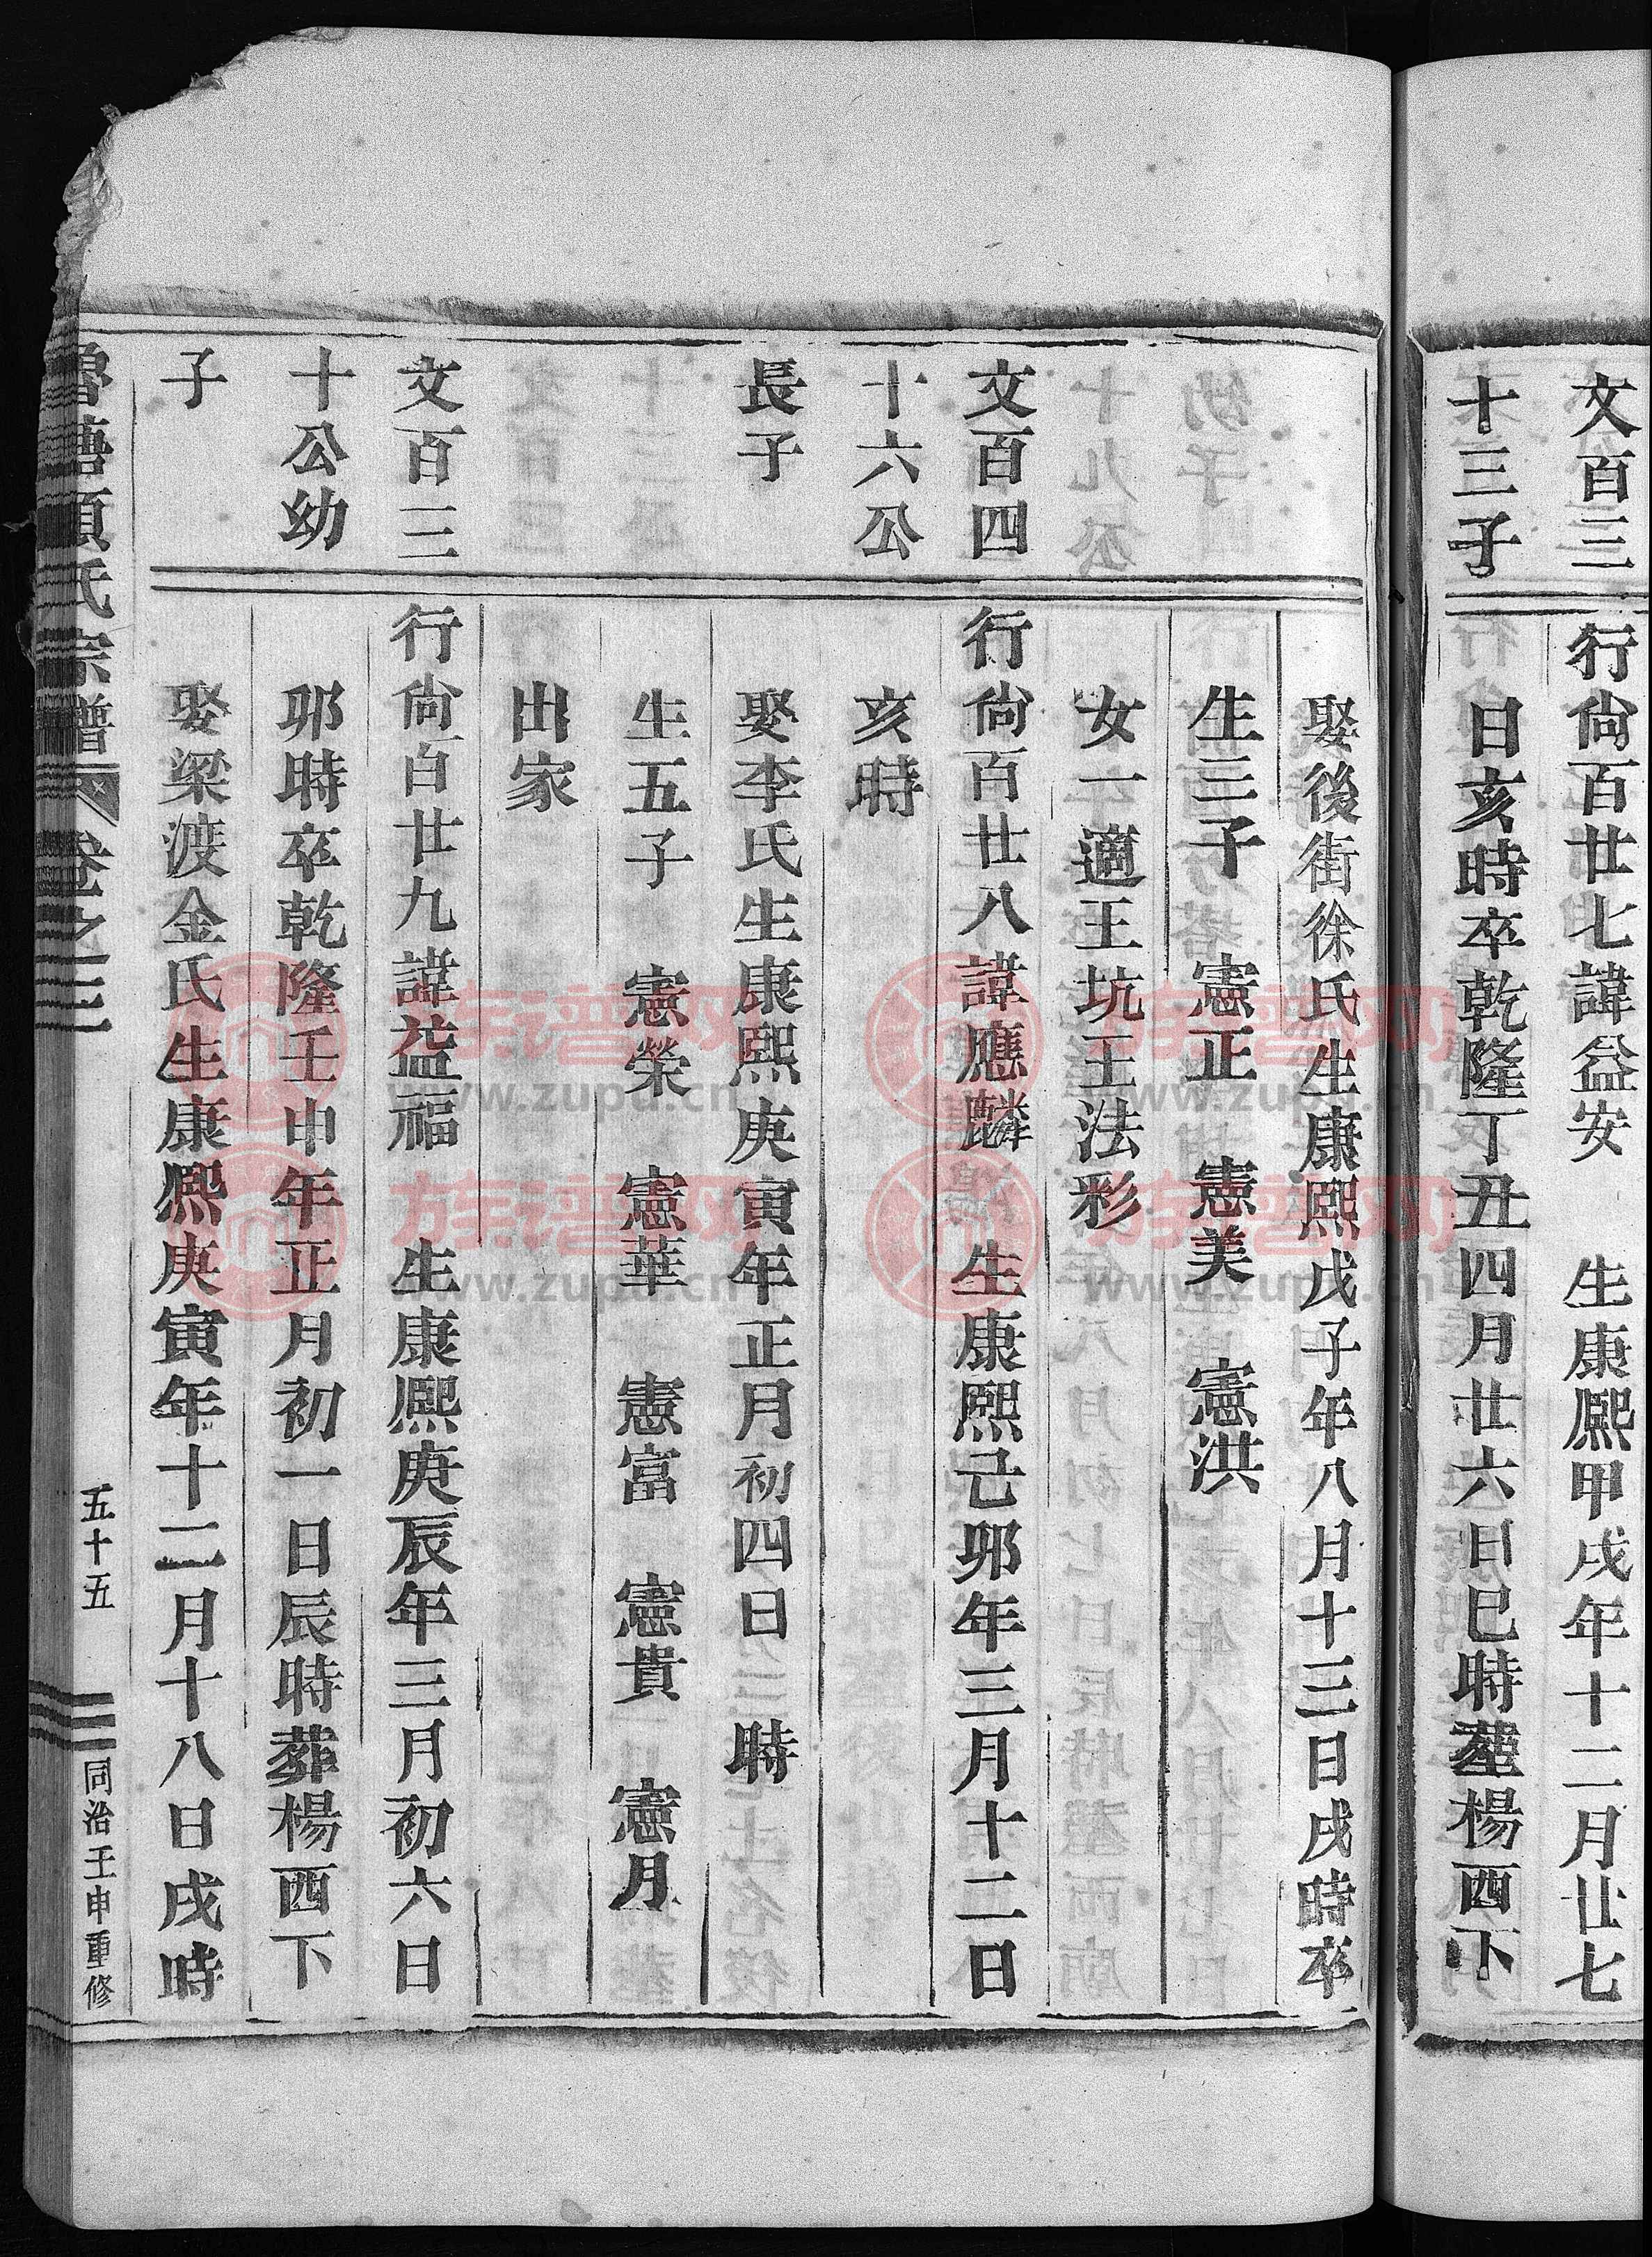 文百三
行尙百廿七諱益安 生康熙甲戌年十二月廿七
十三子
日亥時卒乾隆丁丑四月廿六日巳時塟楊西下
娶後街徐氏生康熙戊子年八月十三日戌時卒
生三子 憲正 憲美 憲洪
女一適王坑王法彩
文百四
行尙百廿八諱應麟 生康熙己卯年三月十二日
十六公
亥時
長子
娶李氏生康熙庚寅年正月初四日 時
生五子 憲榮 憲華 憲富 憲貴 憲月
出家
文百三
行尙百廿九諱益福 生康熙庚辰年三月初六日
十公幼
卯時卒乾隆壬申年正月初一日辰時葬楊西下
子
娶梁渡金氏生康熙庚寅年十二月十八日戌時
魯塘項氏宗譜 卷之三 五十五 同治壬申重修
族谱网 www.zupu.cn
族谱网 www.zupu.cn
族谱网 www.zupu.cn
族谱网 www.zupu.cn